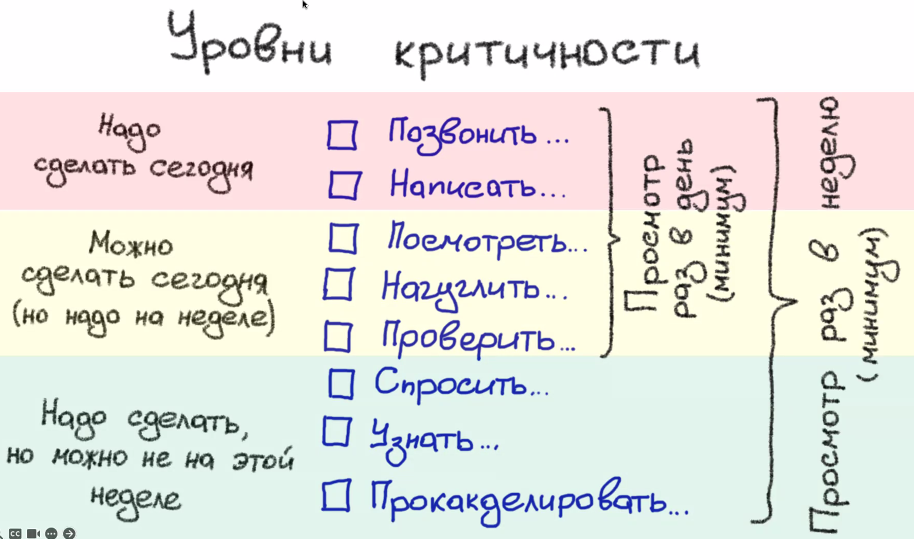 Уровни критичности
Надо
сделать сегодня
Позвонить...
Написать...
Можно
сделать сегодня
(но надо на неделе)
Посмотреть...
Нагуглить...
Проверить...
Надо сделать,
но можно не на этой
неделе
Спросить...
Узнать...
Прокакделировать...
Просмотр
раз в день
(минимум)
Просмотр раз в неделю
(минимум)
CC